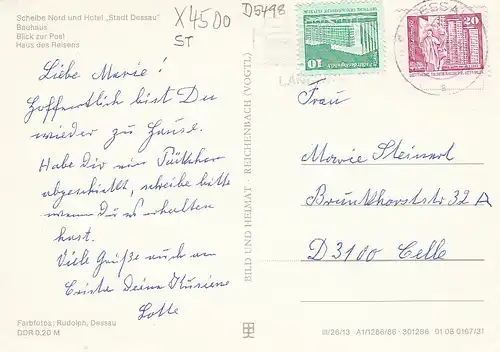 Scheibe Nord und Hotel „Stadt Dessau"
Bauhaus
Blick zur Post
Haus des Reisens
X4500
ST
D5498
10
20
DESSAU
Liebe Marie!
Hoffentlich bist Du
wieder zu Hause.
Habe Dir ein
abgeschickt, schreibe bitte
wenn Du es erhalten
hast.
Viele Grüße auch an
Deine
Lotte
Frau
Marie Steinert
32 A
D3100 Celle
BILD UND HEIMAT · REICHENBACH (VOGTL)
Farbfotos: Rudolph, Dessau
DDR 0,20 M
III/26/13 A1/1286/86 301286 01 08 0167/31